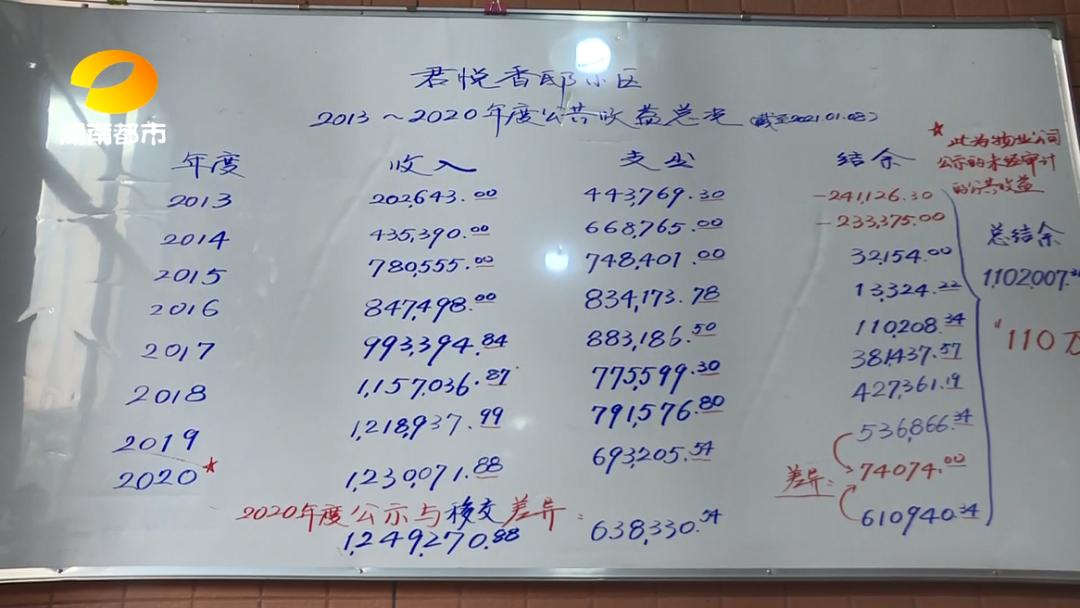 湖南都市
君悦香邸小区
2013~2020年度公共收益总况(截至2021.01.08)
*此为物业公司
公示的未经审计
的公共收益
年度 收入 支出 结余
2013 202,643.00 443,769.30 -241,126.30
2014 435,390.00 668,765.00 -233,375.00
2015 780,555.00 748,401.00 32,154.00
2016 847,498.00 834,173.78 13,324.22
2017 993,394.84 883,186.50 110,208.34
2018 1,157,036.87 775,599.30 381,437.57
2019 1,218,937.99 791,576.80 427,361.19
2020* 1,230,071.88 693,205.54 536,866.34
差异: 74074.00
2020年度公示与移交差异:
1,249,270.88 638,330.54 610940.34
总结余
1,102,007.
110万